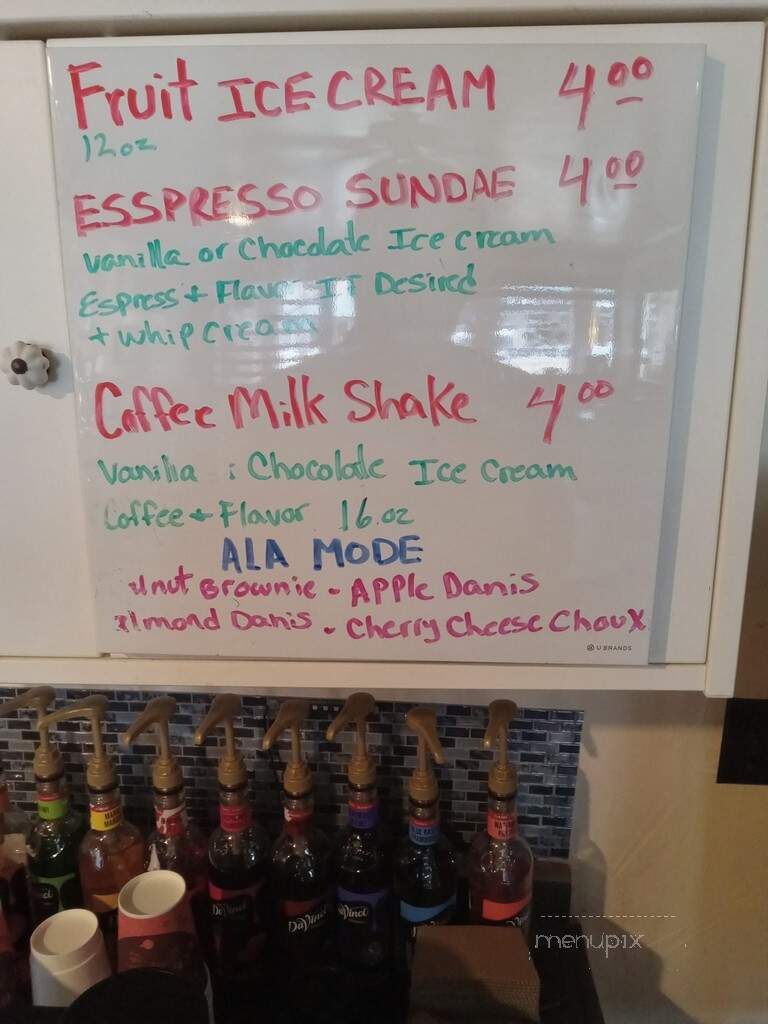 Fruit ICE CREAM 4.00
12oz
ESSPRESSO SUNDAE 4.00
Vanilla or Chocolate Ice cream
Espress + Flavor If Desired
+ whip cream
Coffee Milk Shake 4.00
Vanilla : Chocolate Ice Cream
Coffee + Flavor 16.oz
ALA MODE
Brownie - APPle Danis
Almond Danis - Cherry Cheese Choux
U BRANDS
DaVinci
DaVinci
DaVinci
menupix